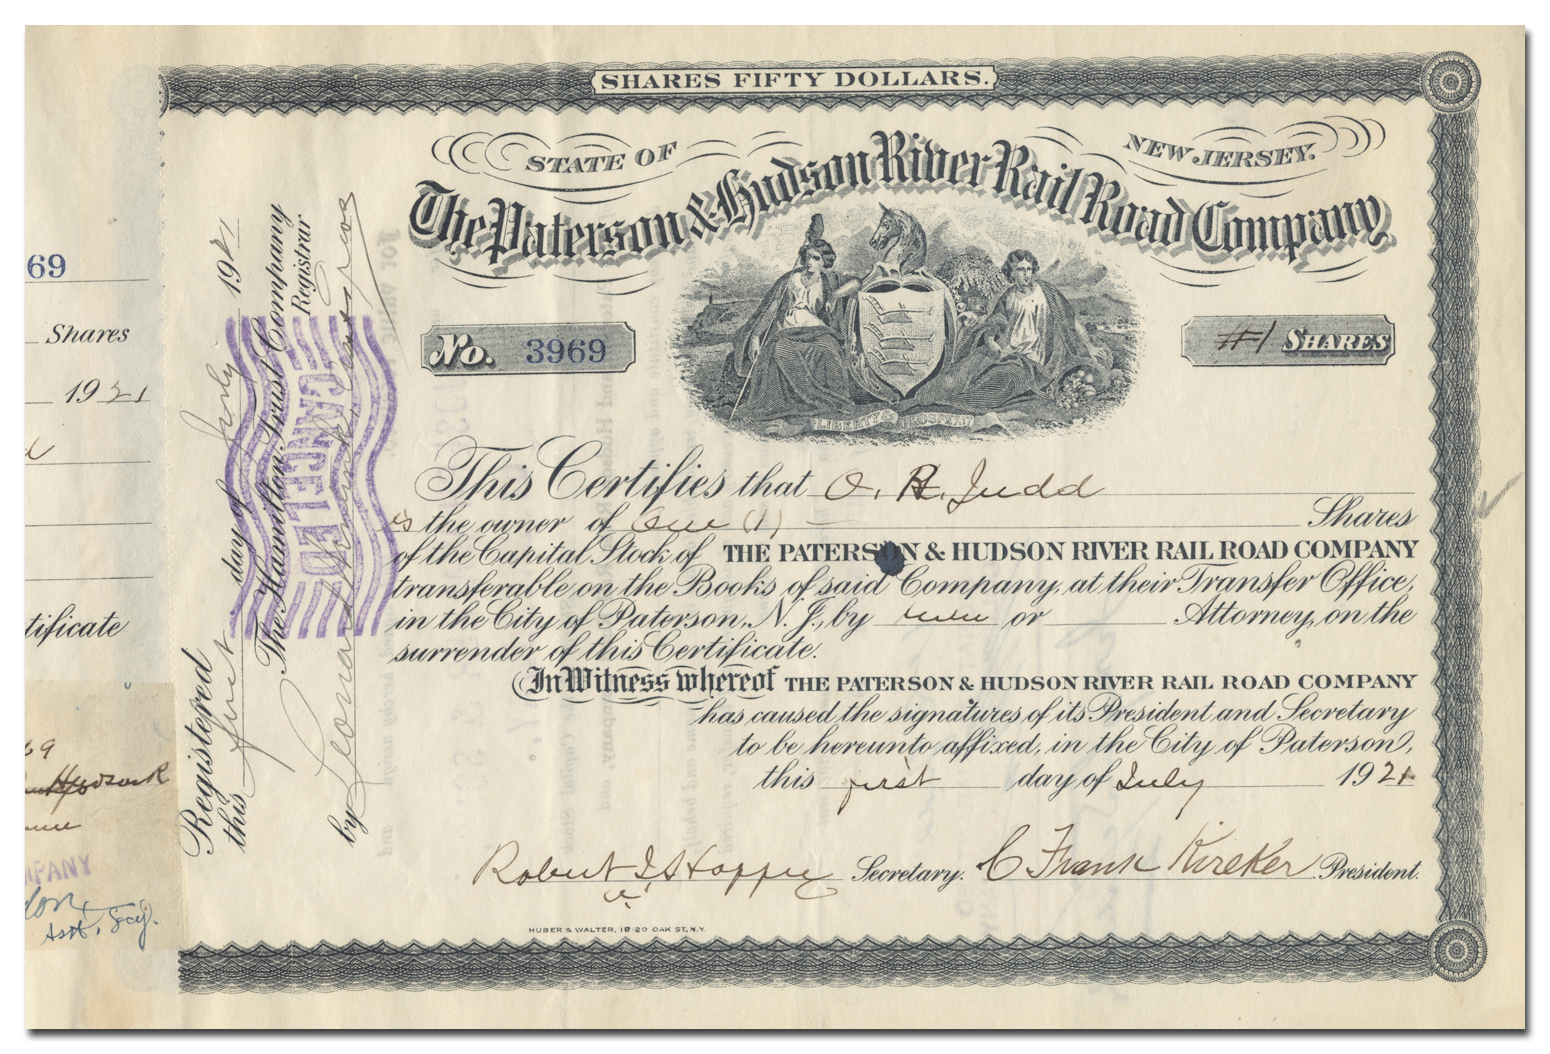 SHARES FIFTY DOLLARS.
STATE OF NEW JERSEY.
The Paterson & Hudson River Rail Road Company
No. 3969
#1 SHARES
LIBERTY & PROSPERITY
This Certifies that O. H. Judd
is the owner of One (1) Shares
of the Capital Stock of THE PATERSON & HUDSON RIVER RAIL ROAD COMPANY
transferable on the Books of said Company, at their Transfer Office,
in the City of Paterson, N. J., by or Attorney, on the
surrender of this Certificate.
In Witness whereof THE PATERSON & HUDSON RIVER RAIL ROAD COMPANY
has caused the signatures of its President and Secretary
to be hereunto affixed, in the City of Paterson,
this first day of July 1921
Robert I. Hopper Secretary. C Frank Kireker President.
HUBER & WALTER, 18-20 OAK ST, N.Y.
Registered
this first day of July 1921
The Hamilton Trust Company
Registrar
by
CANCELLED
69
Shares
1921
d
tificate
69
Hudson R
MPANY
Asst. Secy.